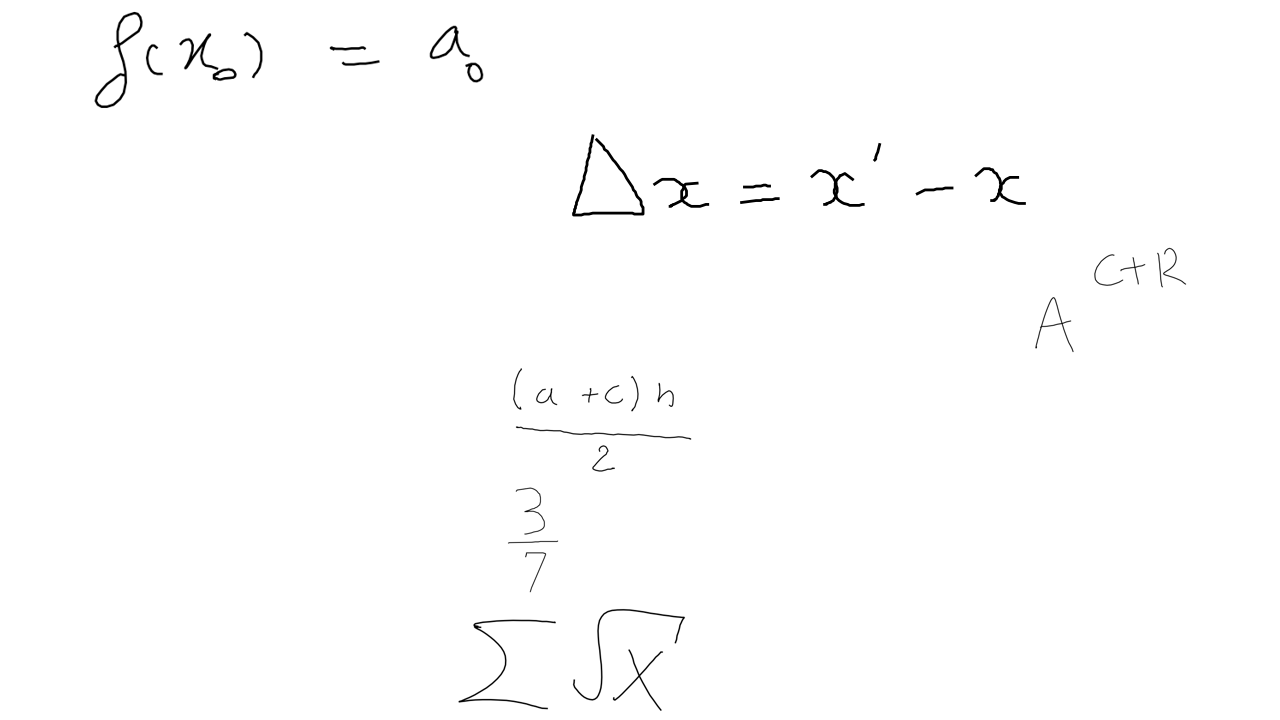 f(x₀) = a₀
Δx = x′ − x
A^{C+R}
\frac{(a+c)h}{2}
\frac{3}{7}
∑ √X